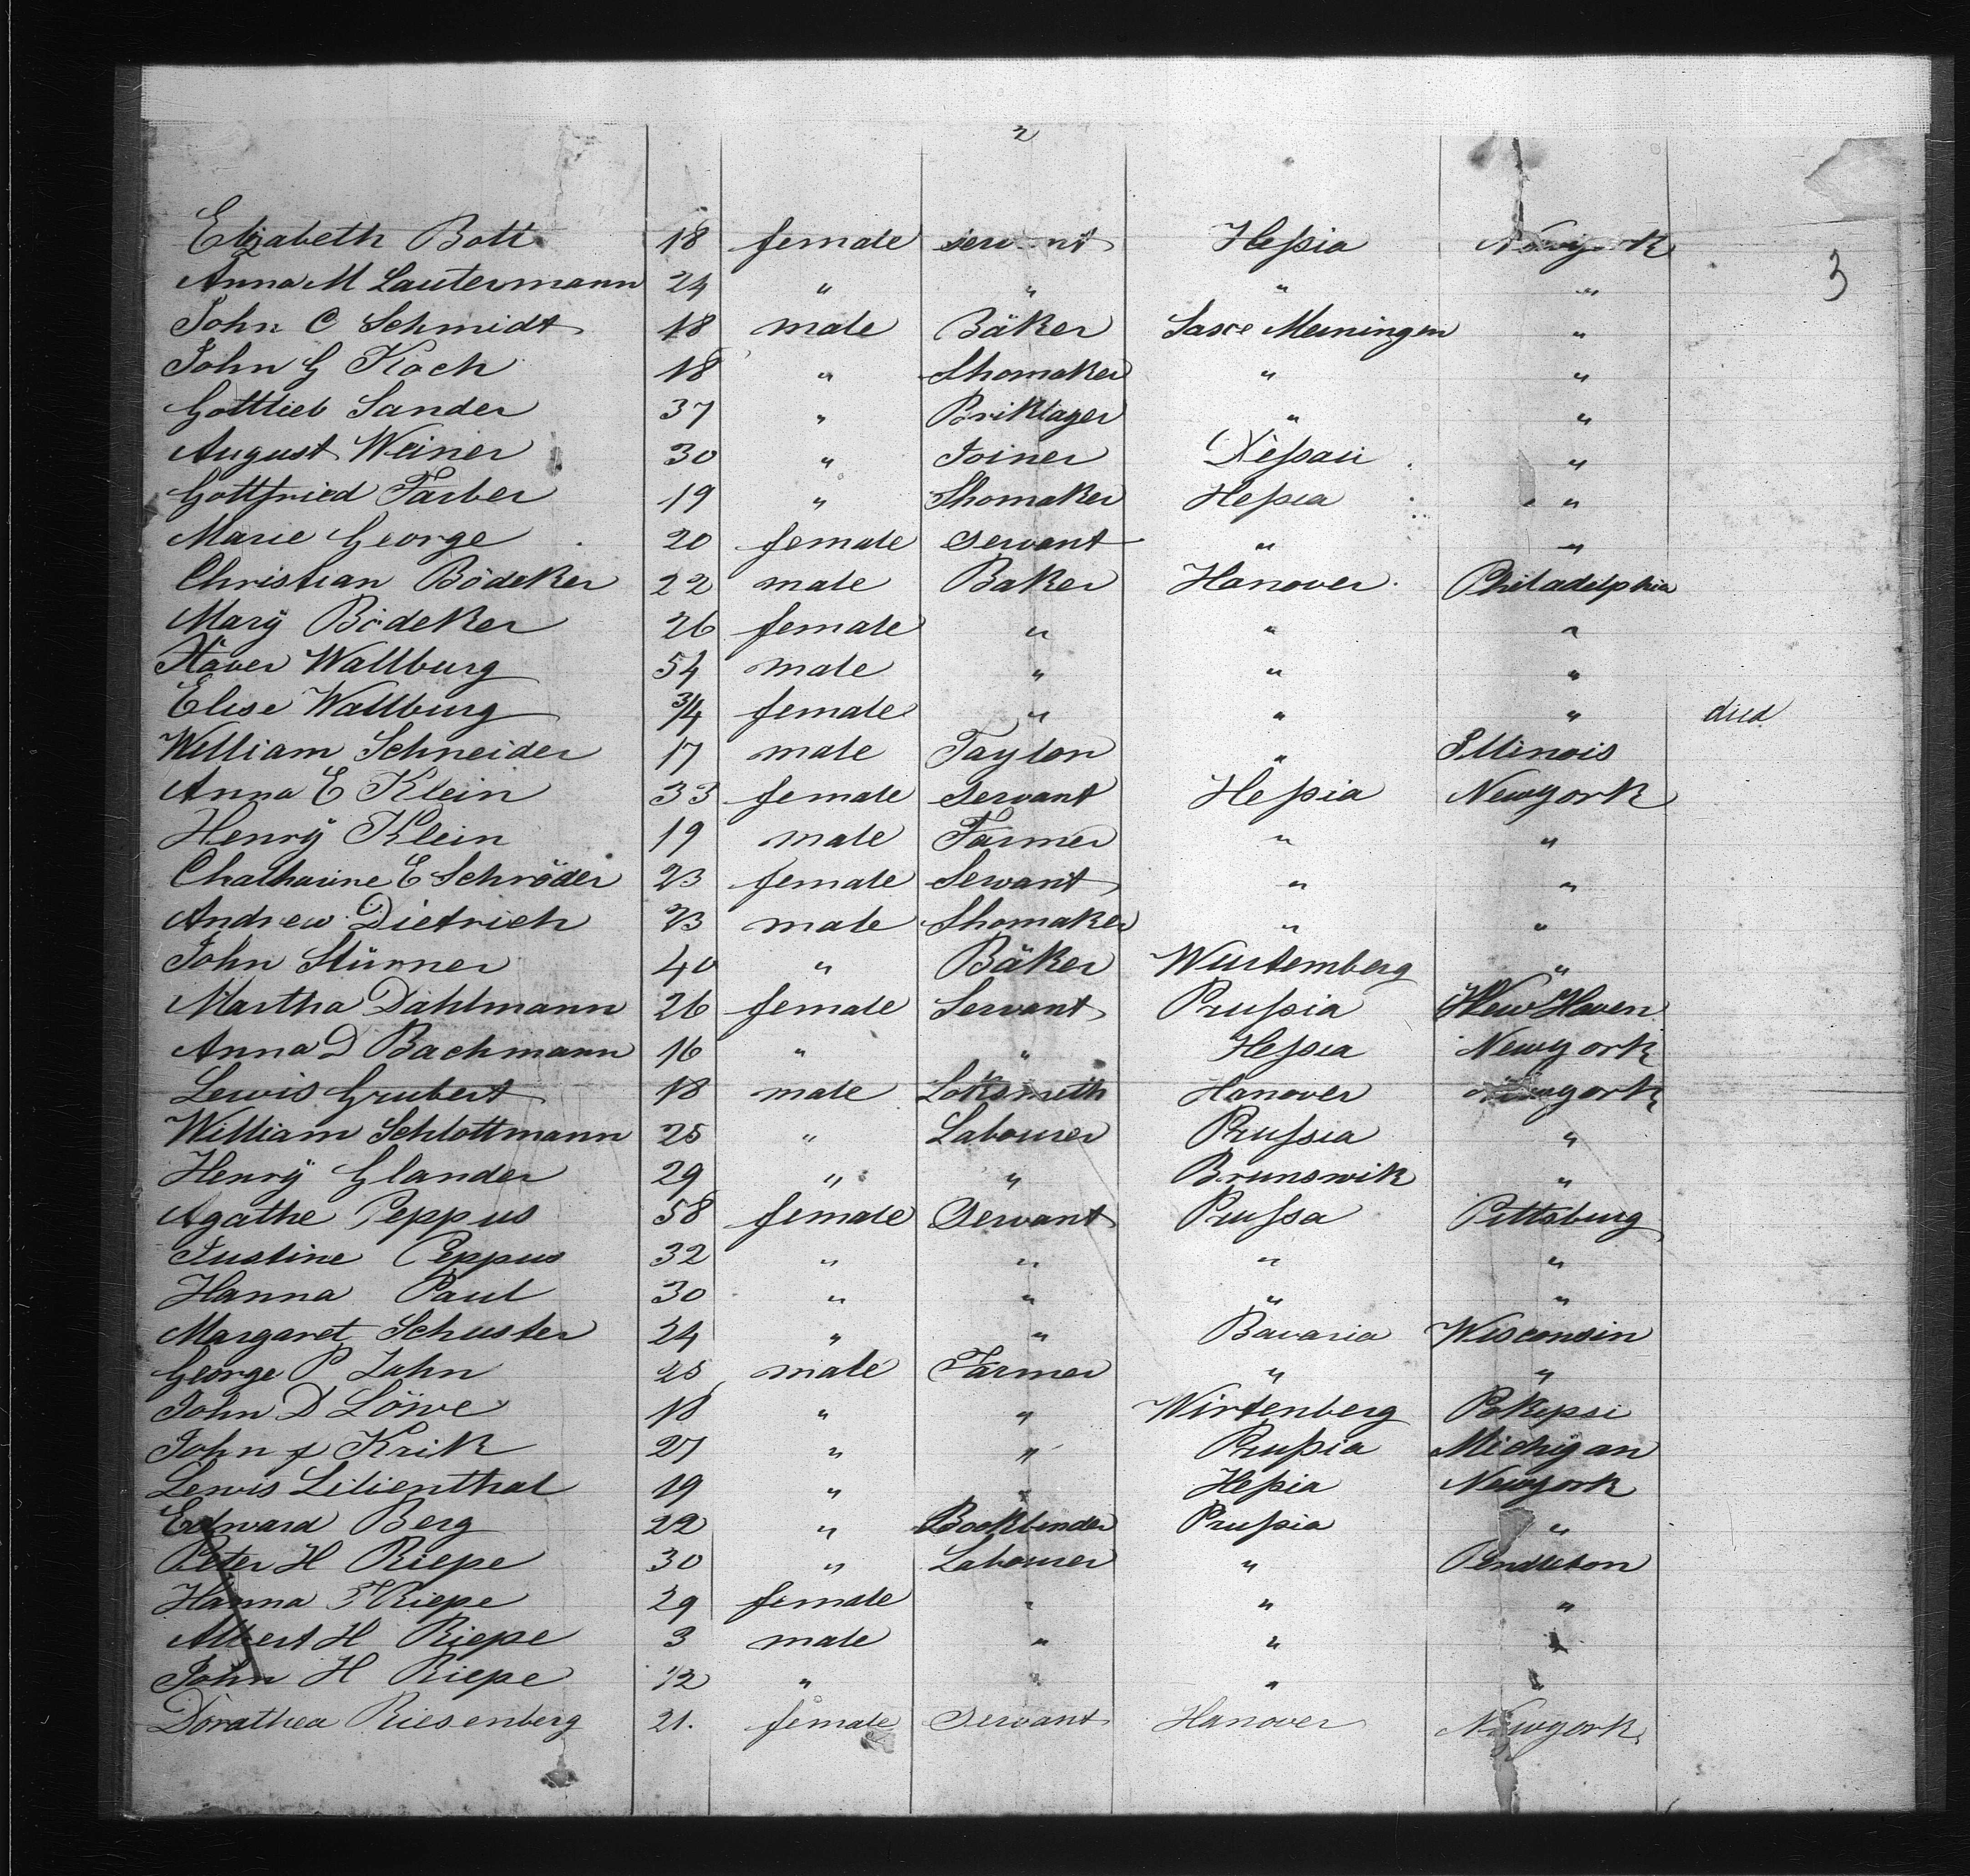 2
3
Elizabeth Bott 18 female servant Heßia Newyork
Anna M Lautermann 24 " " " "
John C Schmidt 18 male Bäker Saxe Meiningen "
John G Koch 18 " Shomaker " "
Gottlieb Sander 37 " Briklager " "
August Weiner 30 " Joiner Deßau "
Gottfried Farber 19 " Shomaker Heßia "
Marie George 20 female Servant " "
Christian Bödeker 22 male Baker Hanover Philadelphia
Mary Bödeker 26 female " " "
Xaver Wallburg 54 male " " "
Elise Wallburg 3/4 female " " " died
William Schneider 17 male Taylor " Illinois
Anna E Klein 33 female Servant Heßia Newyork
Henry Klein 19 male Farmer " "
Chatharine E Schröder 23 female Servant " "
Andrew Dietrich 23 male Shomaker " "
John Stürner 40 " Bäker Wurtemberg "
Martha Dahlmann 26 female Servant Prußia New Haven
Anna D Bachmann 16 " " Heßia Newyork
Lewis Grubert 18 male Loksmith Hanover Newyork
William Schlottmann 25 " Labourer Prußia "
Henry Glander 29 " " Brunswik "
Agathe Peppus 58 female Servant Prußa Pittsburg
Justine Peppus 32 " " " "
Hanna Paul 30 " " " "
Margaret Schuster 24 " " Bavaria Wisconsin
George P Jahn 25 male Farmer " "
John D Löwe 18 " " Wirtenberg Pokepsi
John f Krik 27 " " Prußia Michigan
Lewis Lilienthal 19 " " Heßia Newyork
Edward Berg 22 " Bookbinder Prußia "
Peter H Riepe 30 " Labourer " Pendleton
Hanna F Riepe 29 female " " "
Albert H Riepe 3 male " " "
John H Riepe 1/2 " " " "
Dorathea Riesenberg 21. female Servant Hanover Newyork